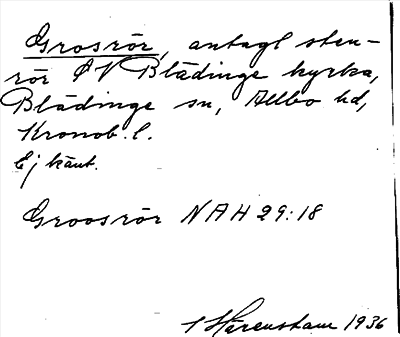 Grosrör, antagl sten-
rör SV Blädinge kyrka,
Blädinge sn, Allbo hd,
Kronob. l.
Ej känt.
Groosrör NAH 29:18
Härenstam 1936